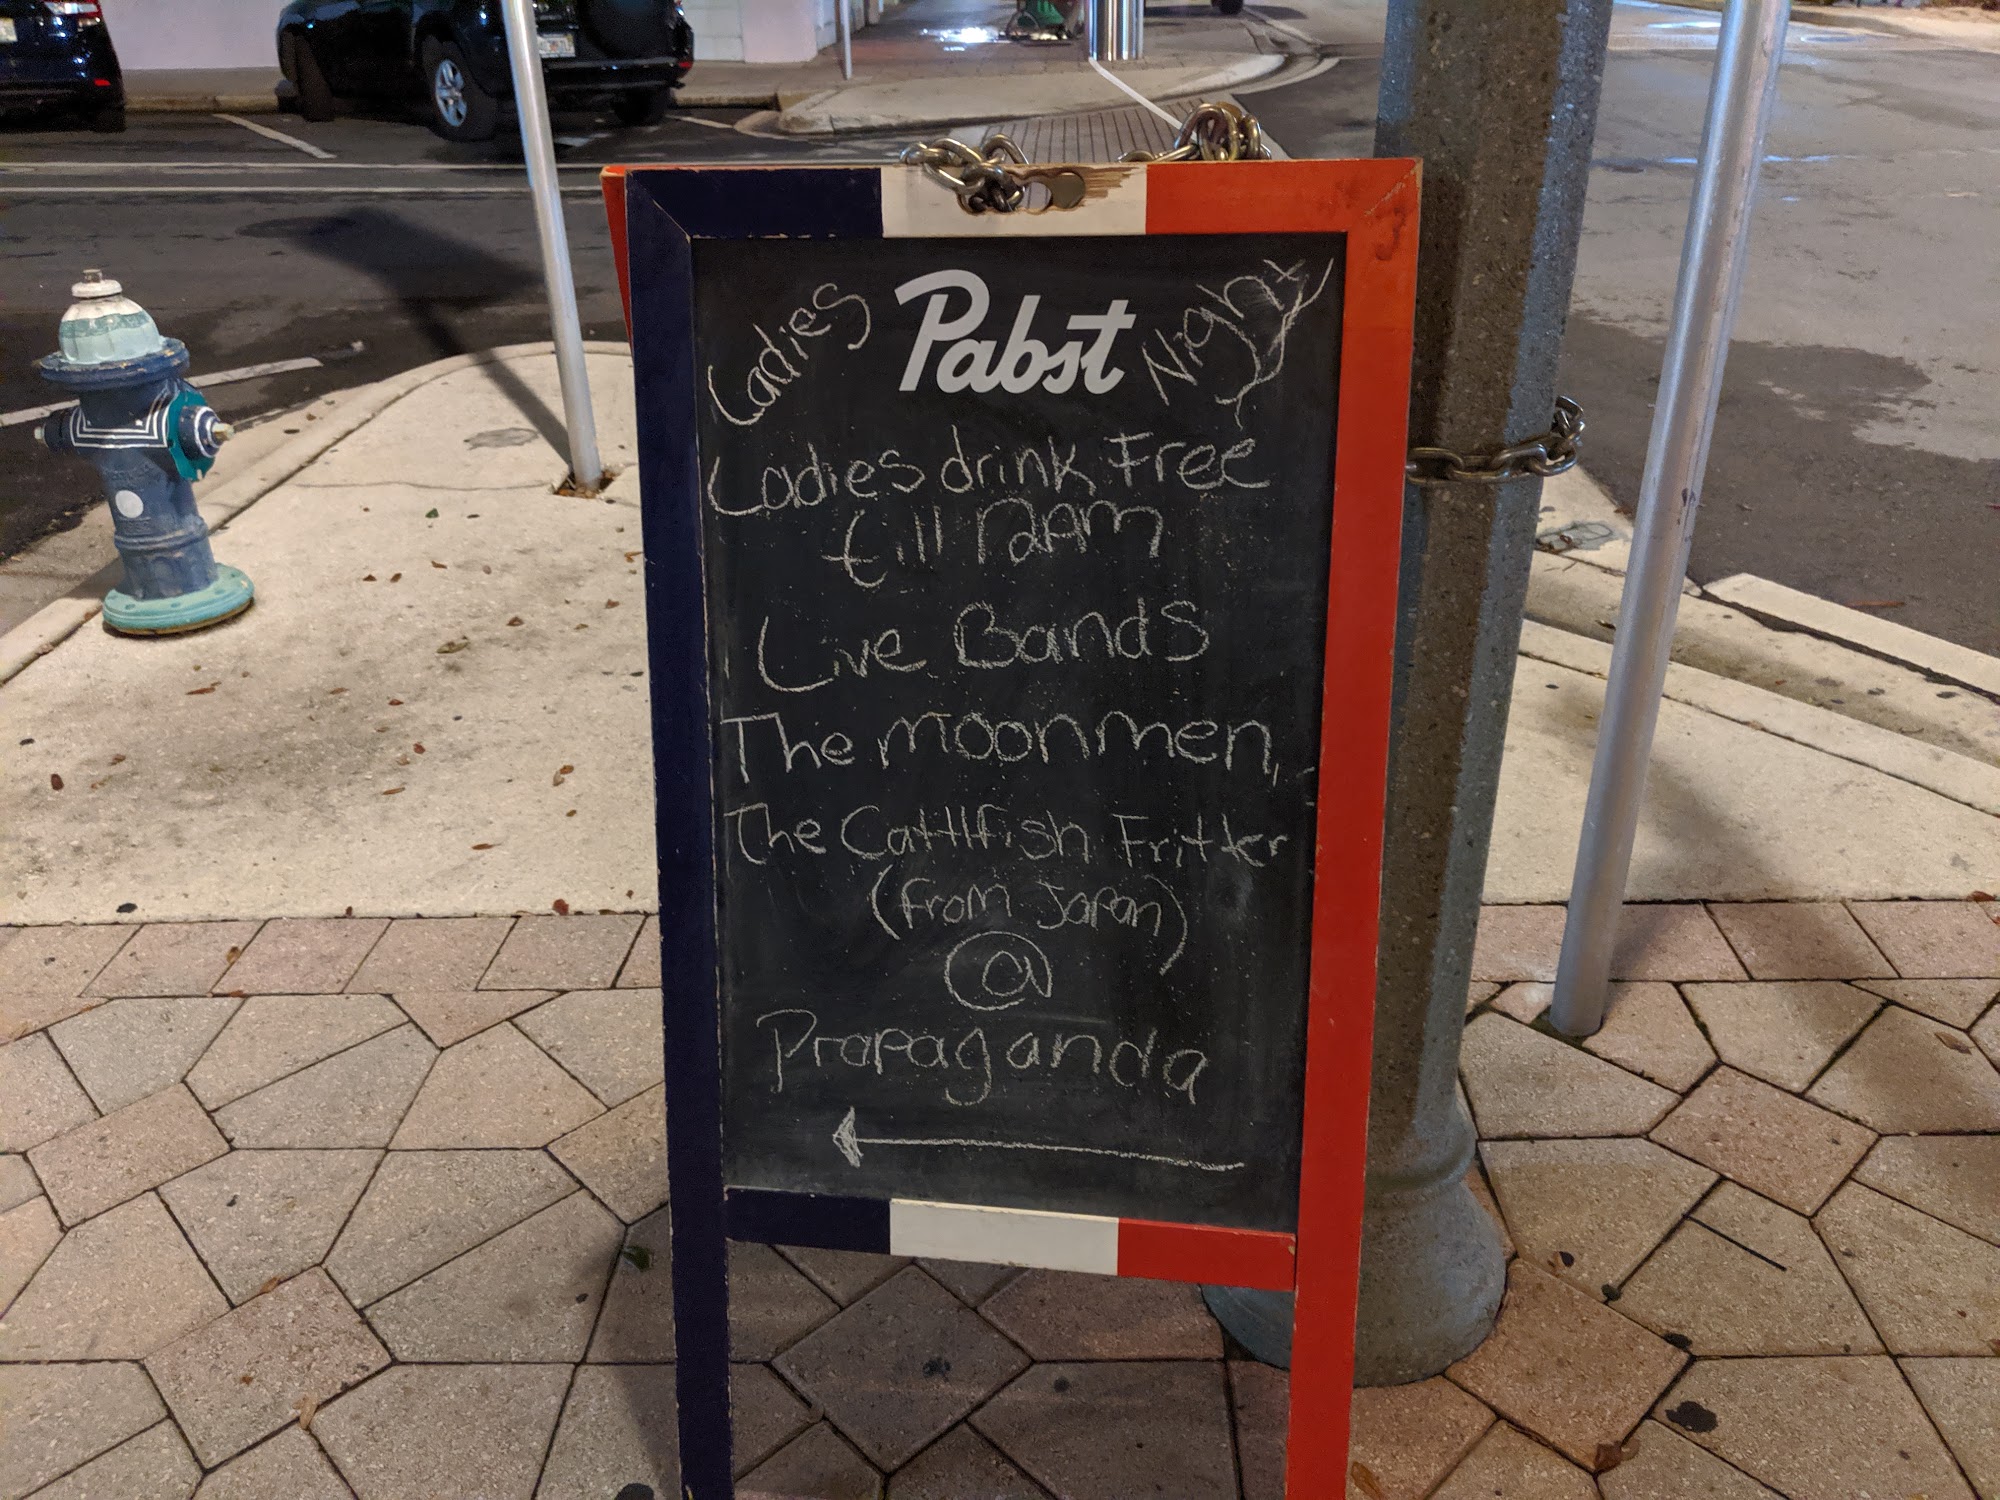 Ladies Pabst Night
Ladies drink Free
till 12AM
Live Bands
The moonmen,
The Cattlfish Fritter
(From Japan)
@
Propaganda